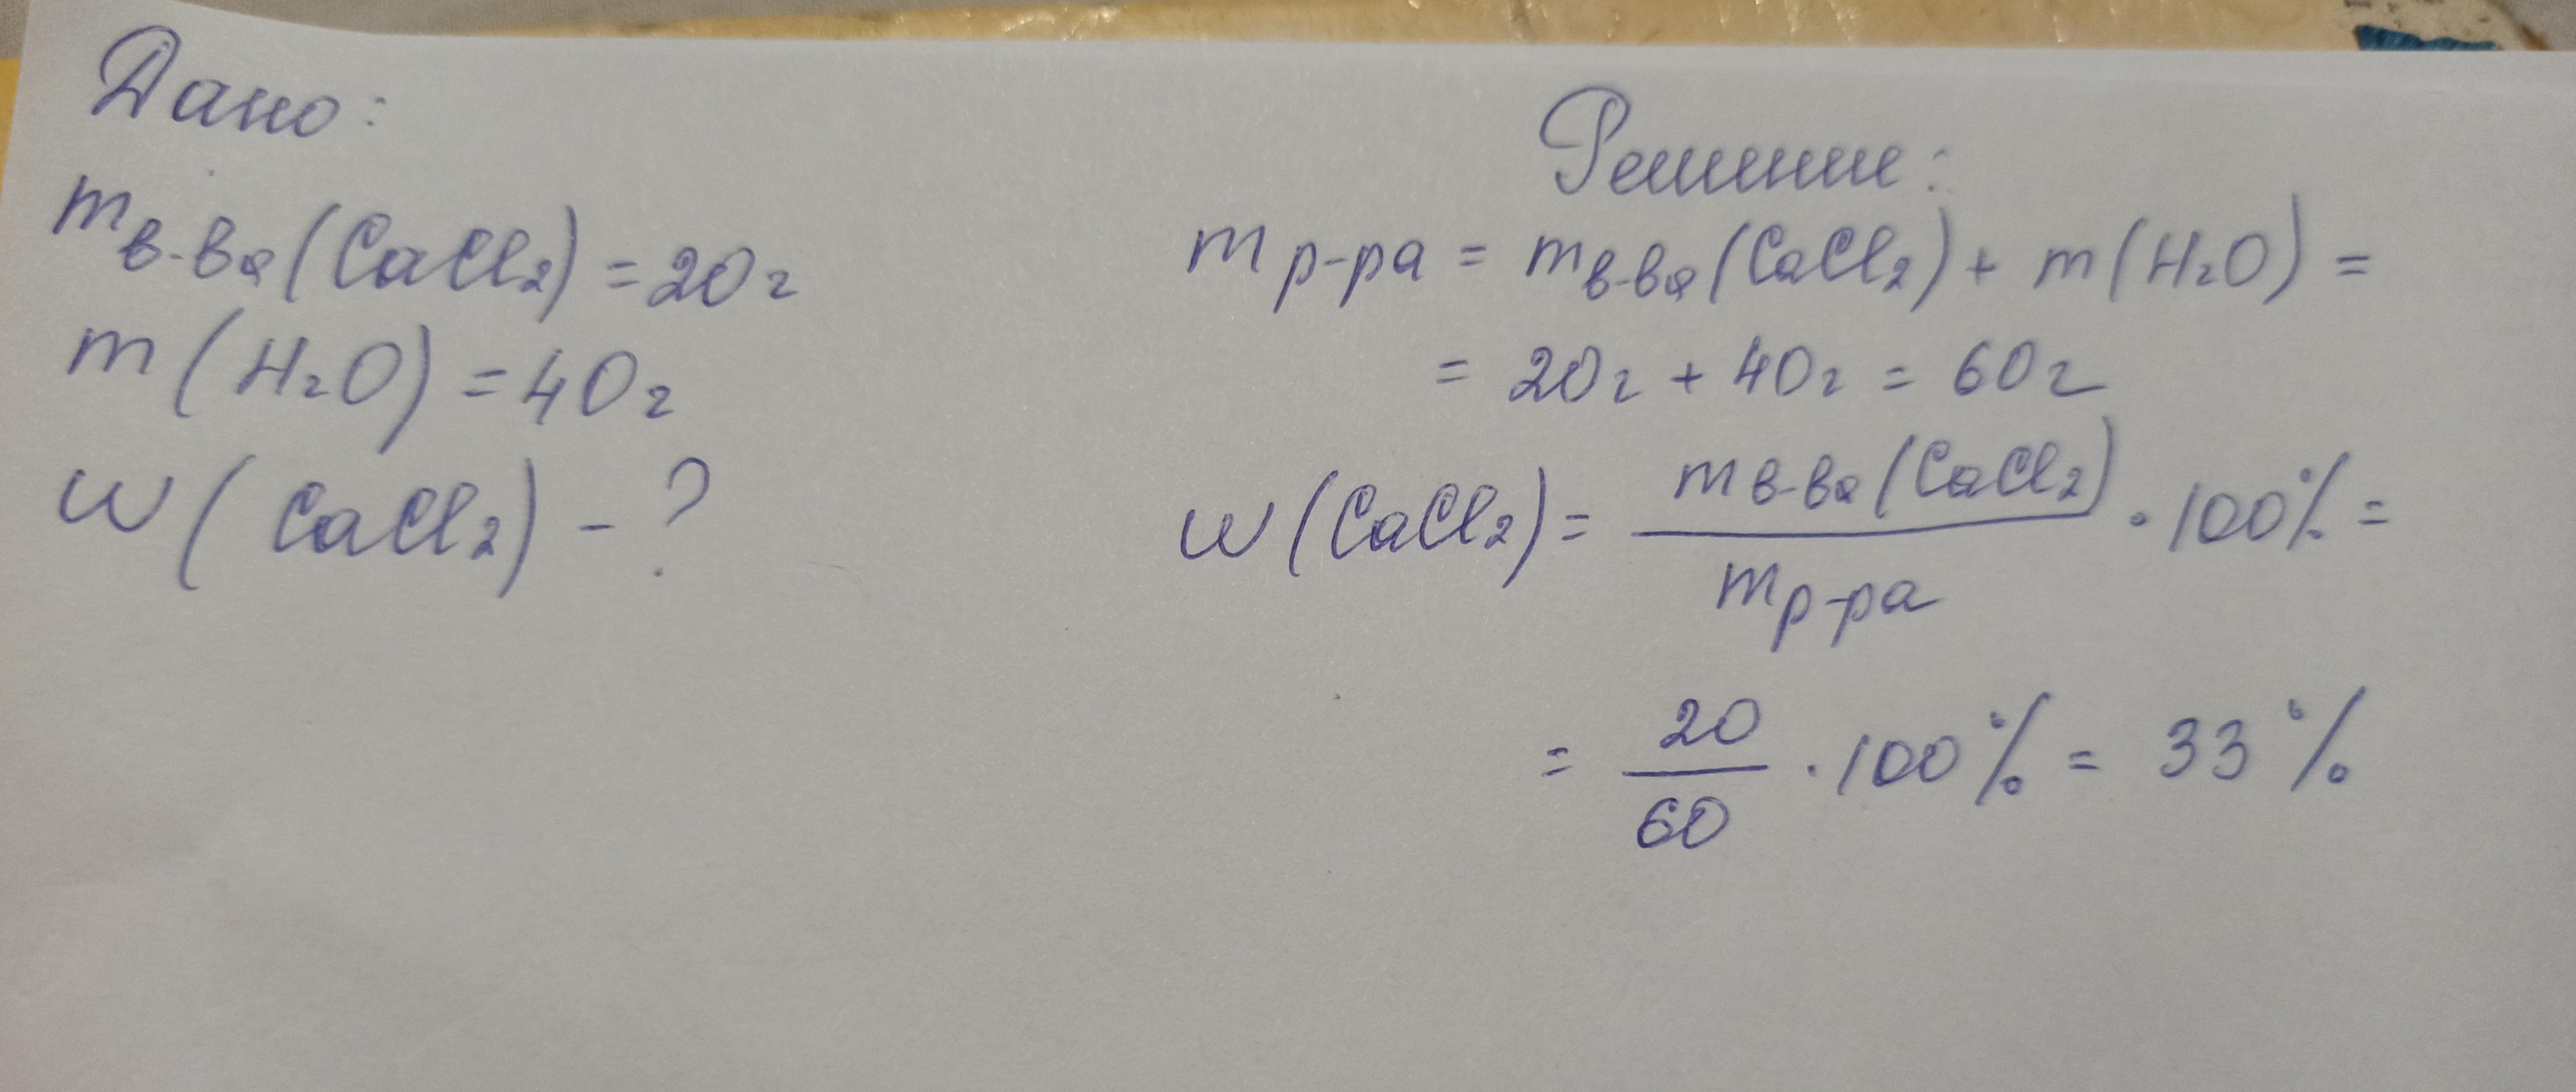 Дано:
m в-ва (CaCl₂) = 20 г
m (H₂O) = 40 г
w (CaCl₂) - ?
Решение:
m р-ра = m в-ва (CaCl₂) + m (H₂O) =
= 20 г + 40 г = 60 г
w (CaCl₂) = m в-ва (CaCl₂) / m р-ра · 100% =
= 20 / 60 · 100% = 33%